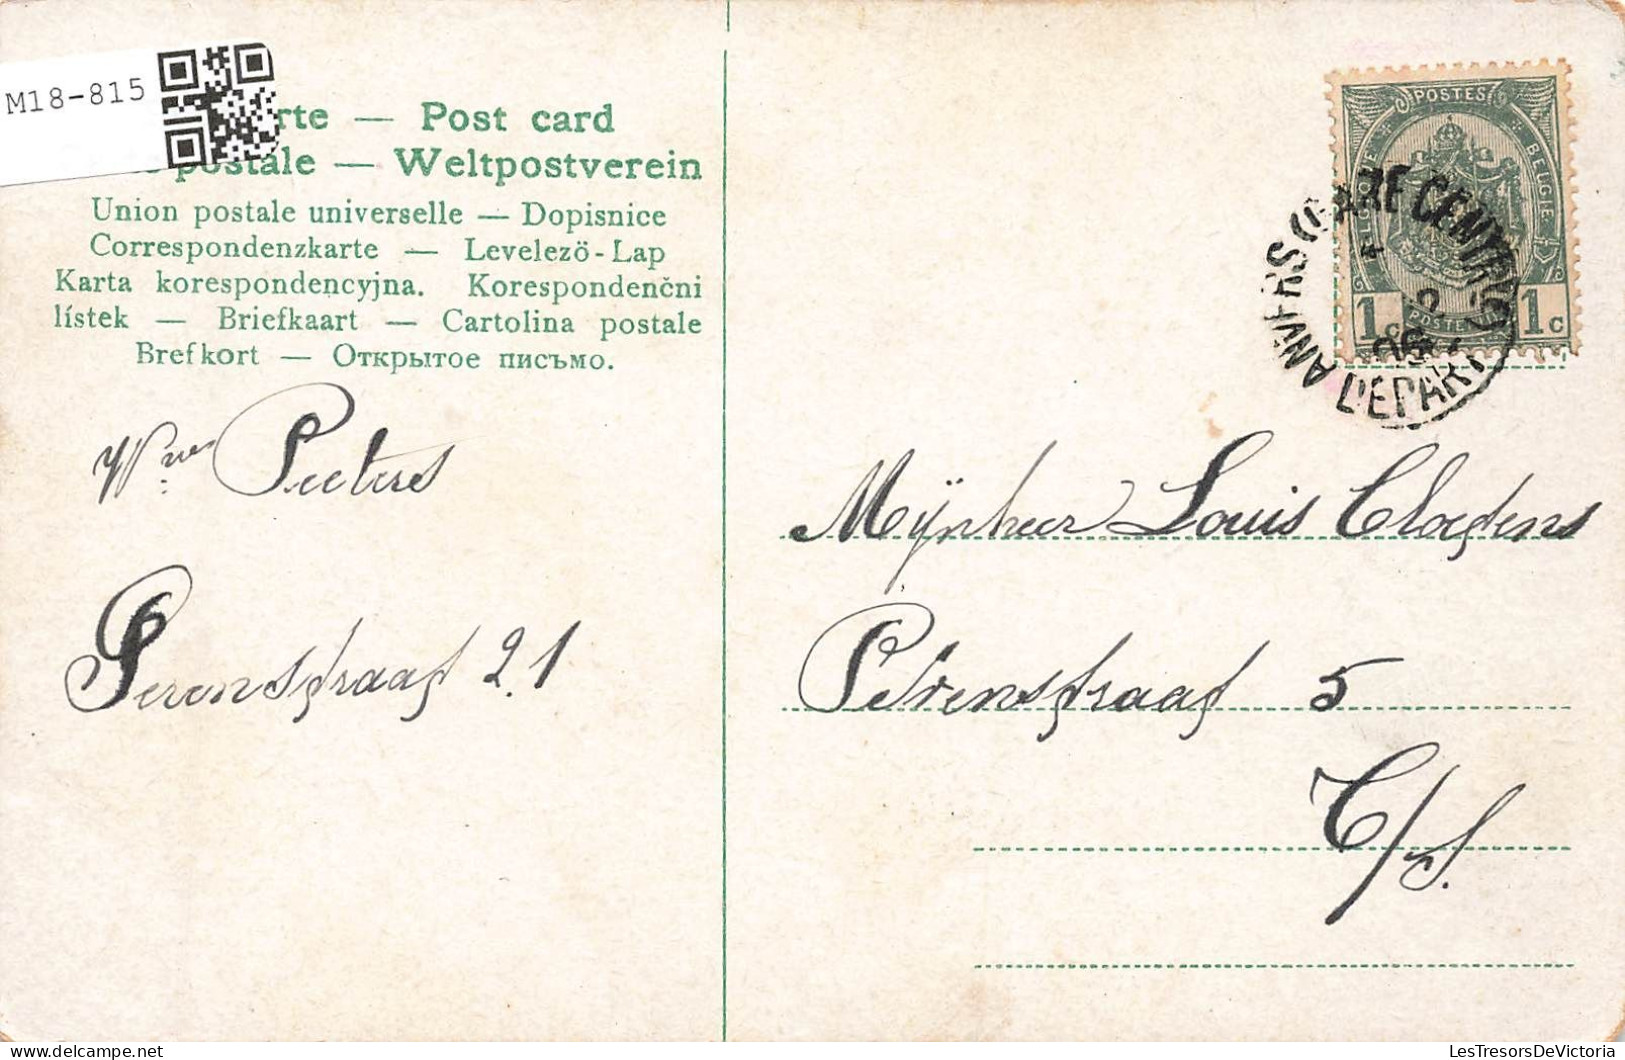 M18-815
rte — Post card
postale — Weltpostverein
Union postale universelle — Dopisnice
Correspondenzkarte — Levelező-Lap
Karta korespondencyjna. Korespondenčni
lístek — Briefkaart — Cartolina postale
Brefkort — Открытое письмо.
POSTES
BELGIQUE BELGIE
1c POSTERIJEN 1c
ANVERS (GARE CENTRALE)
DEPART
Peeters
21
Mÿnheer Louis Claessens
5
C/S.
LesTresorsDeVictoria